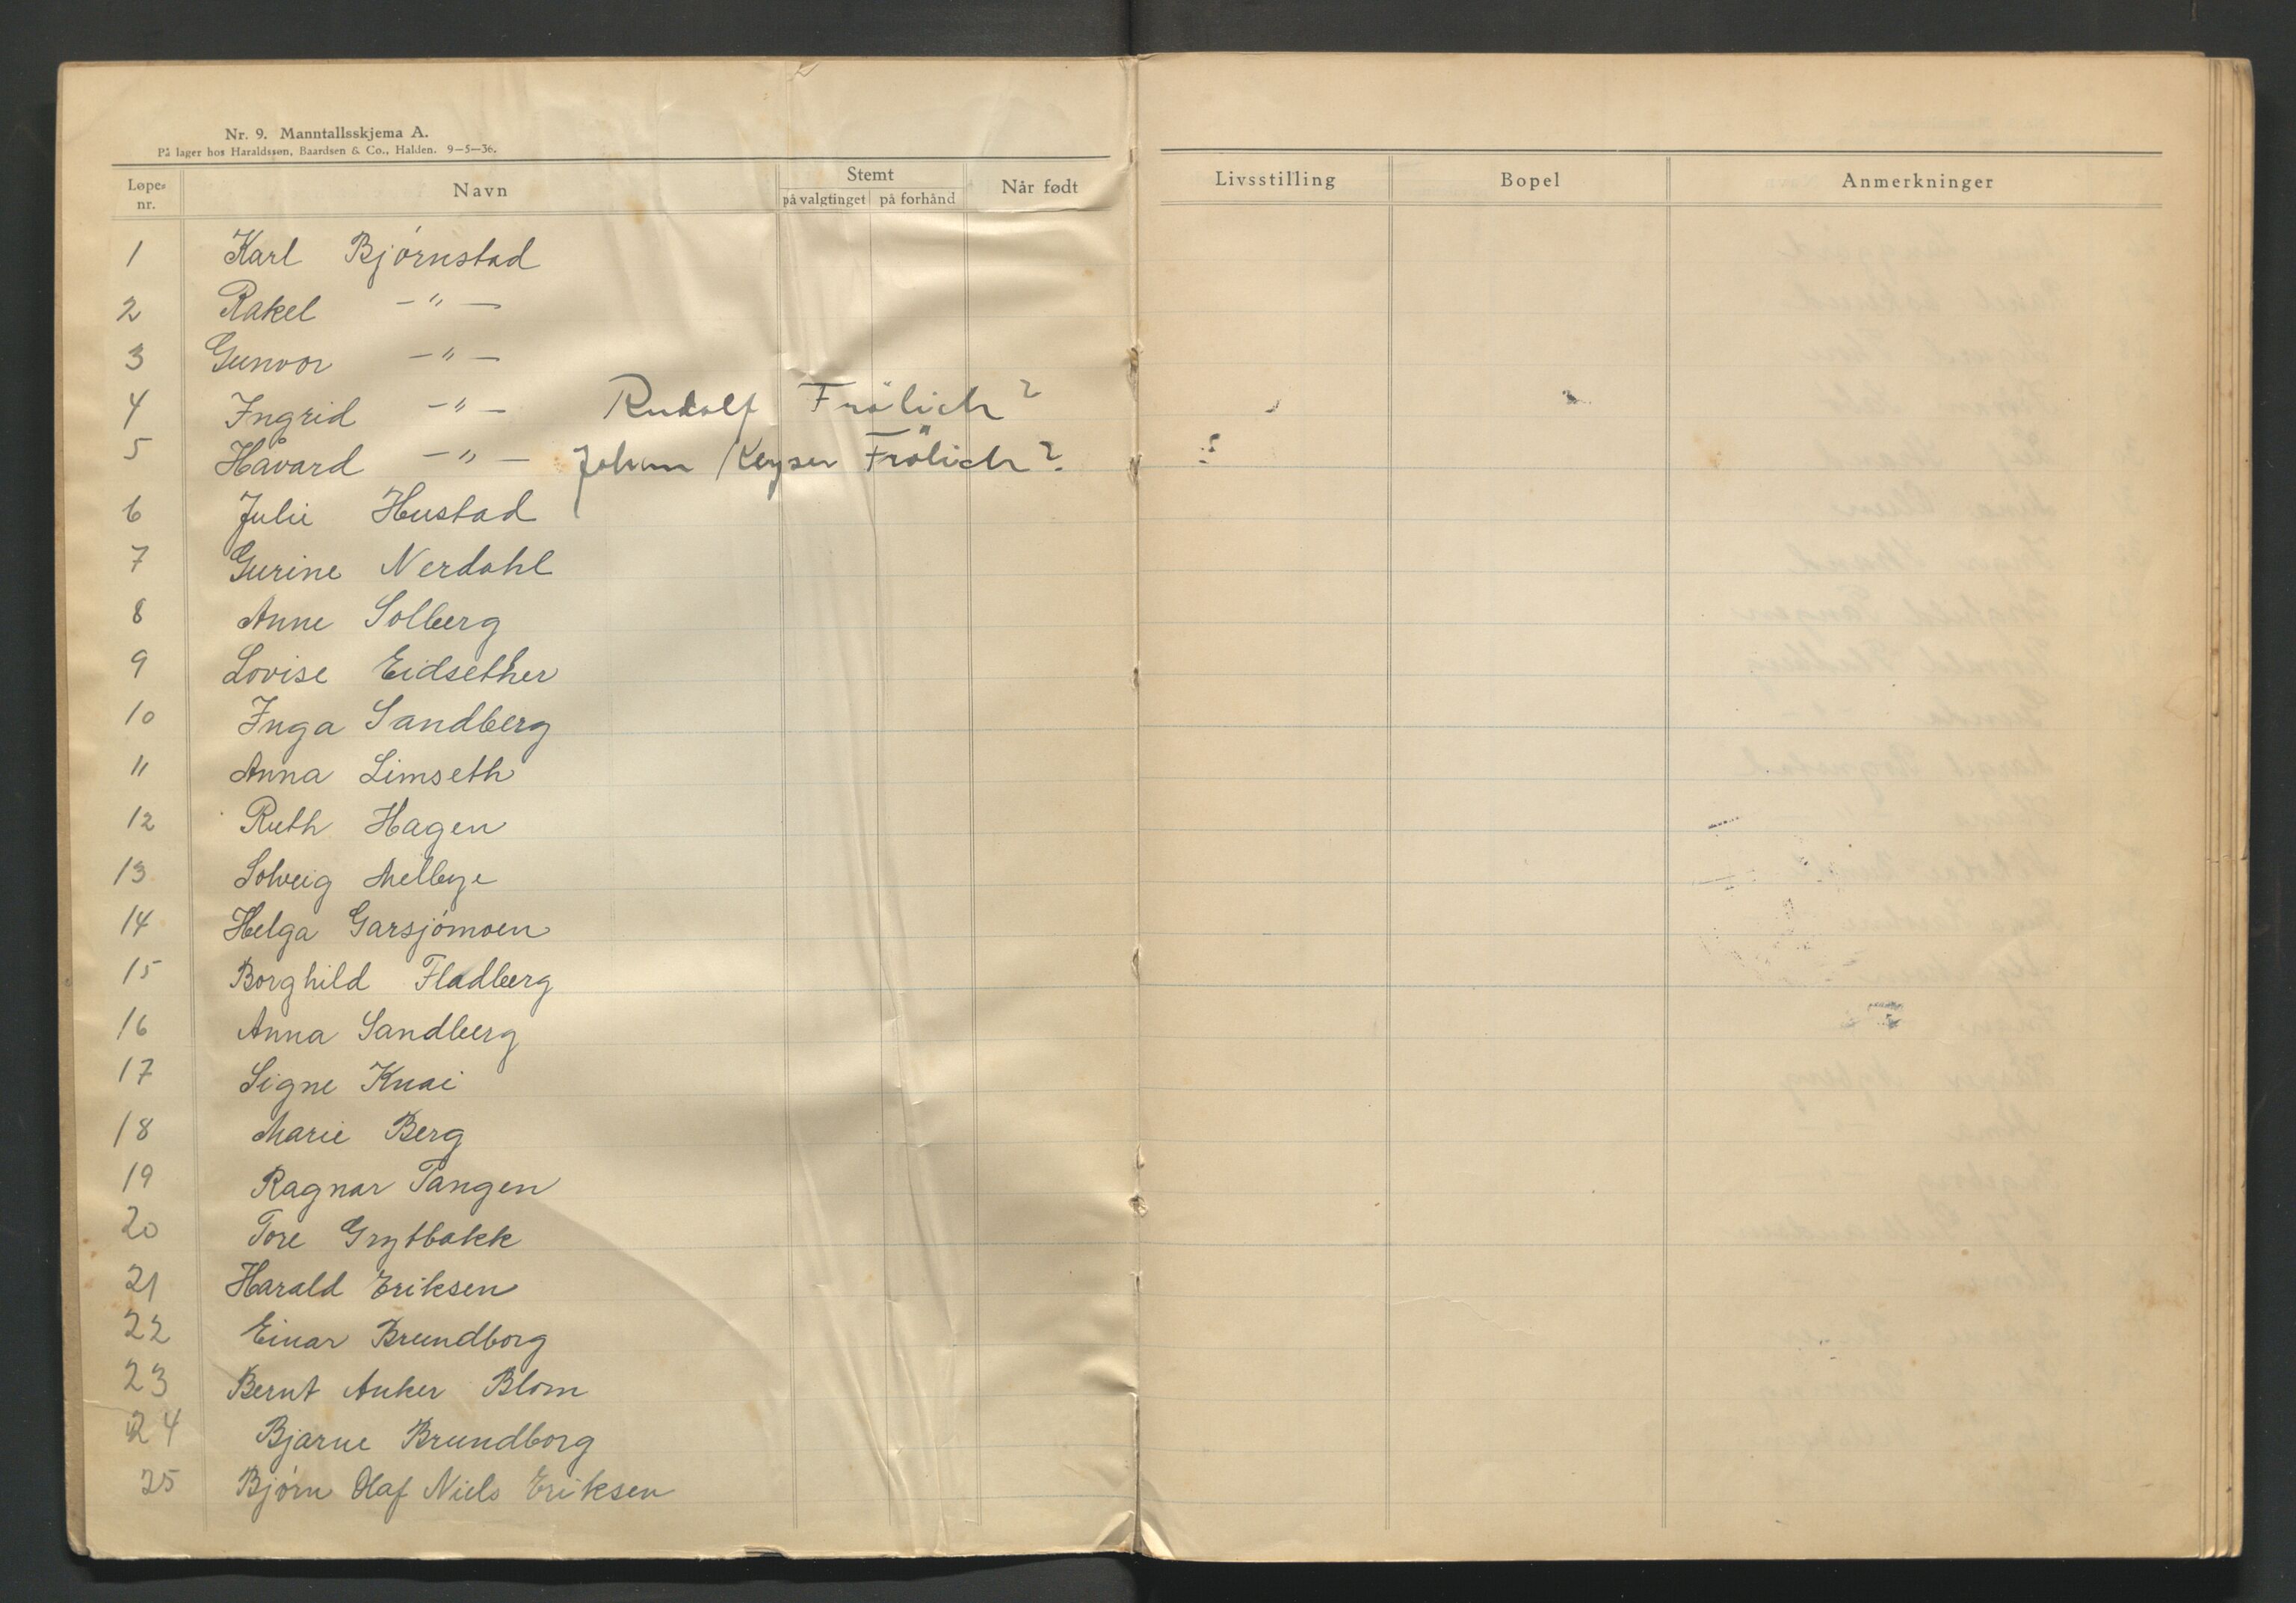 Nr. 9. Manntallsskjema A.
På lager hos Haraldssøn, Baardsen & Co., Halden. 9–5–36.
Løpe-nr. Navn Stemt på valgtinget på forhånd Når født Livsstilling Bopel Anmerkninger
1 Karl Bjørnstad
2 Rakel —"—
3 Gunvor —"—
4 Ingrid —"— Rudolf Frölich?
5 Håvard —"— Johan Keyser Frölich?
6 Julie Hustad
7 Gurine Nerdahl
8 Anne Solberg
9 Lovise Eidsether
10 Inga Sandberg
11 Anna Limseth
12 Ruth Hagen
13 Solveig Melbye
14 Helga Garsjømoen
15 Borghild Fladberg
16 Anna Sandberg
17 Signe Knai
18 Marie Berg
19 Ragnar Tangen
20 Tore Grytbakk
21 Harald Eriksen
22 Einar Brundborg
23 Bernt Anker Blom
24 Bjarne Brundborg
25 Bjørn Olaf Niels Eriksen